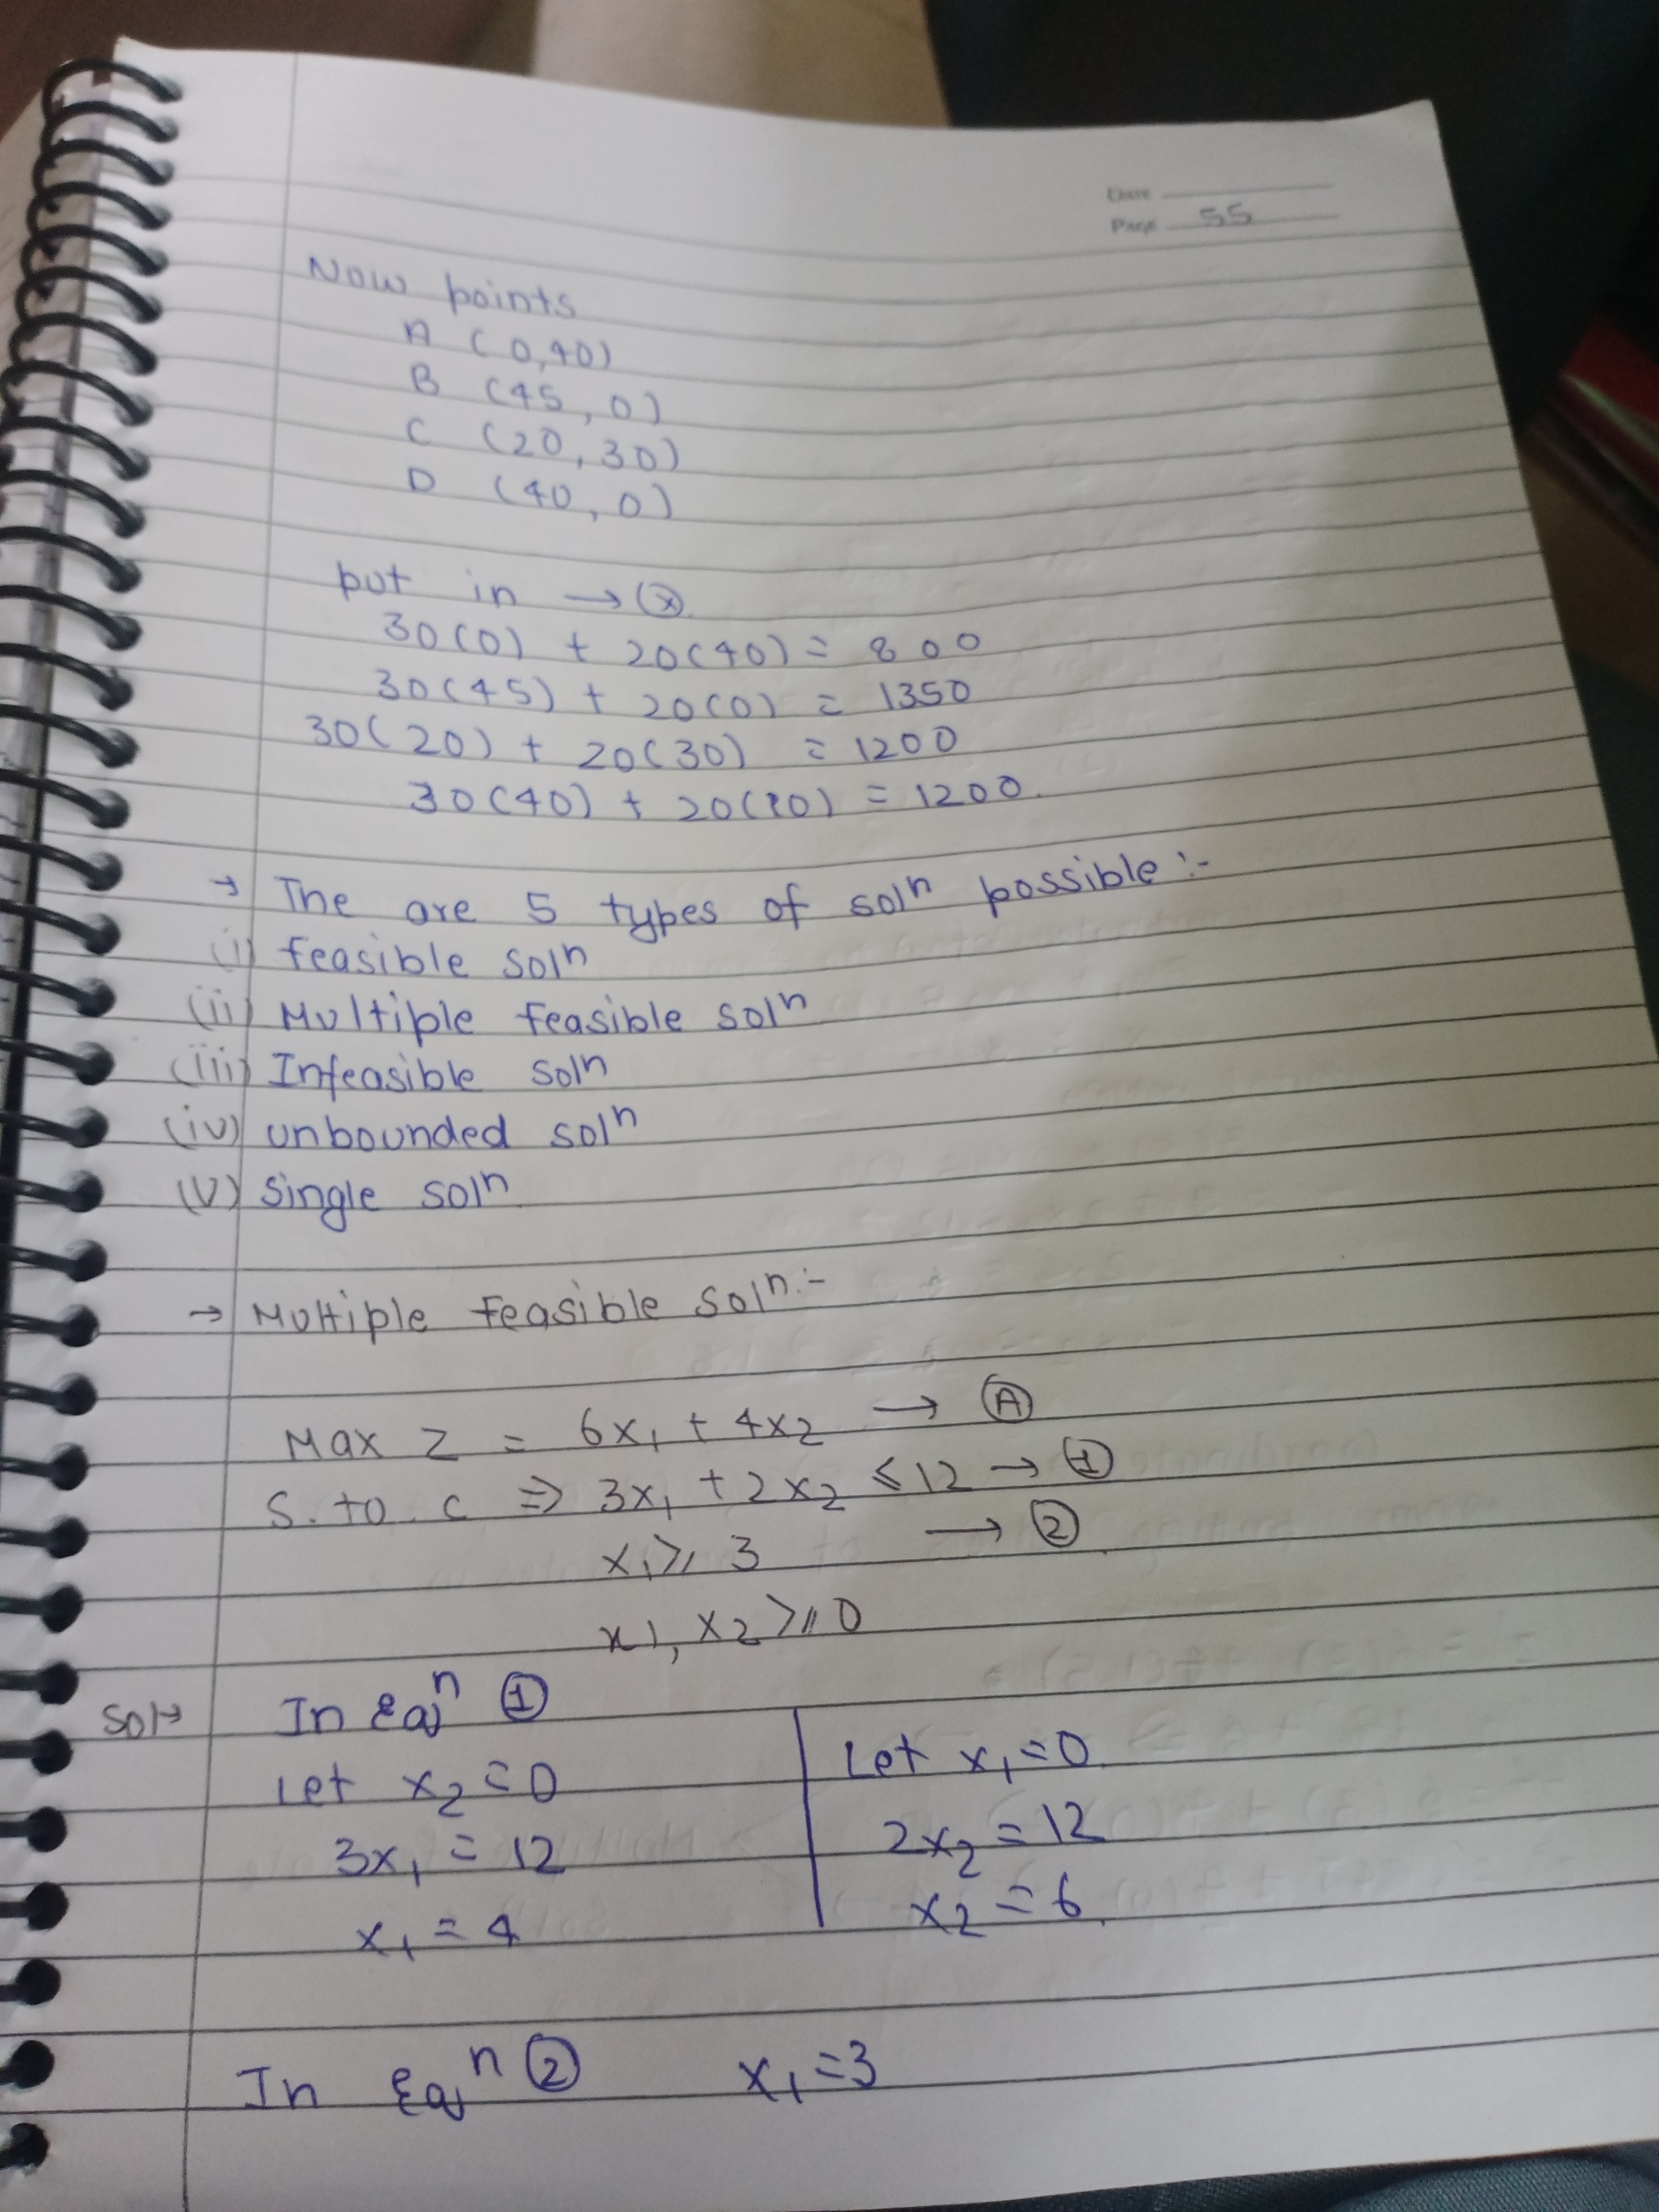 Date
Page 55
Now points
A (0,40)
B (45, 0)
C (20, 30)
D (40, 0)
put in →
30(0) + 20(40) = 800
30(45) + 20(0) = 1350
30(20) + 20(30) = 1200
30(40) + 20( 0) = 1200.
→ The are 5 types of solⁿ possible :-
(i) feasible solⁿ
(ii) Multiple feasible solⁿ
(iii) Infeasible solⁿ
(iv) unbounded solⁿ
(v) Single solⁿ
→ Multiple feasible solⁿ:-
Max Z = 6x₁ + 4x₂ → Ⓐ
S. to. c ⇒ 3x₁ + 2x₂ ≤ 12 → ①
x₁ ≥ 3 → ②
x1, x₂ ≥ 0
Sol→ In Eqⁿ ①
Let x₂ = 0 | Let x₁ = 0
3x₁ = 12 | 2x₂ = 12
x₁ = 4 | x₂ = 6.
In Eqⁿ ② x₁ = 3